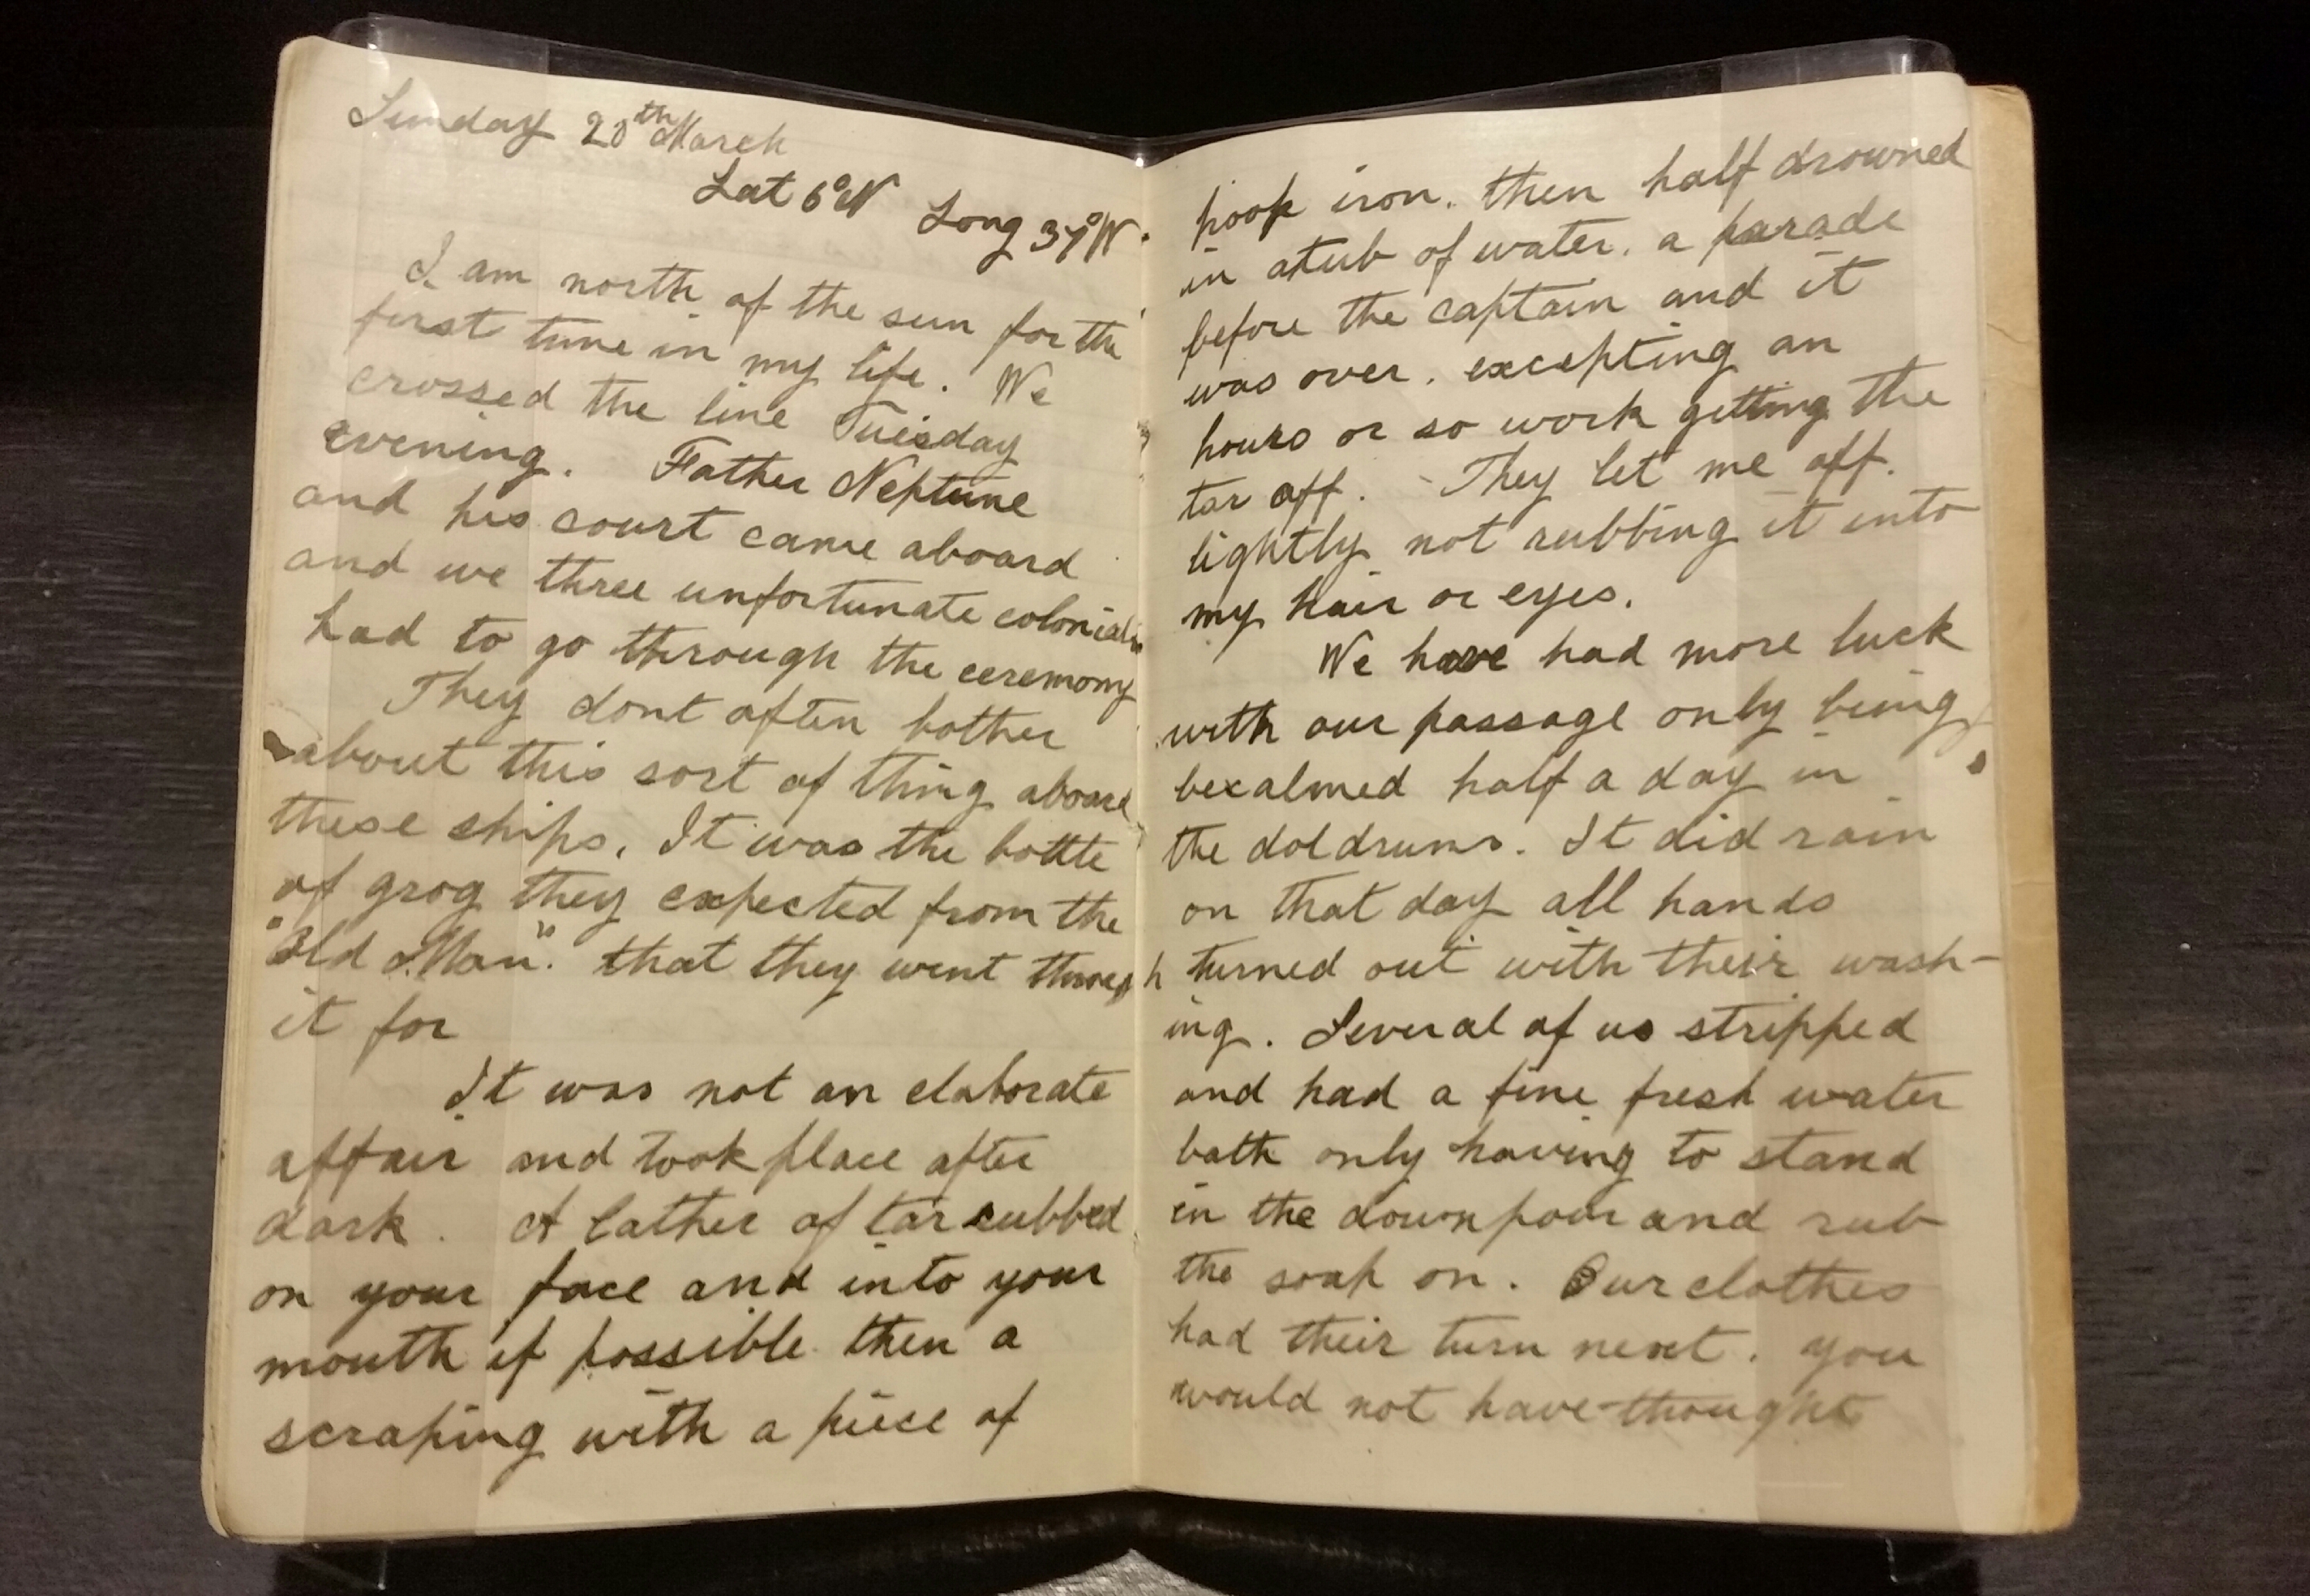 Sunday 20th March
Lat 6°N Long 37°W.
I am north of the sun for the
first time in my life. We
crossed the line Tuesday
evening. Father Neptune
and his court came aboard
and we three unfortunate colonials
had to go through the ceremony
They dont often bother
about this sort of thing aboard
these ships. It was the bottle
of grog they expected from the
"Old Man". that they went through
it for
It was not an elaborate
affair and took place after
dark. A lather of tar rubbed
on your face and into your
mouth if possible then a
scraping with a piece of
hoop iron. then half drowned
in a tub of water. a parade
before the captain and it
was over. excepting an
hours or so work getting the
tar off. - They let me off.
lightly not rubbing it into
my hair or eyes.
We have had more luck
with our passage only being
becalmed half a day in
the doldrums. It did rain
on that day all hands
turned out with their wash-
ing. Several of us stripped
and had a fine fresh water
bath only having to stand
in the downpour and rub
the soap on. Our clothes
had their turn next. you
would not have thought